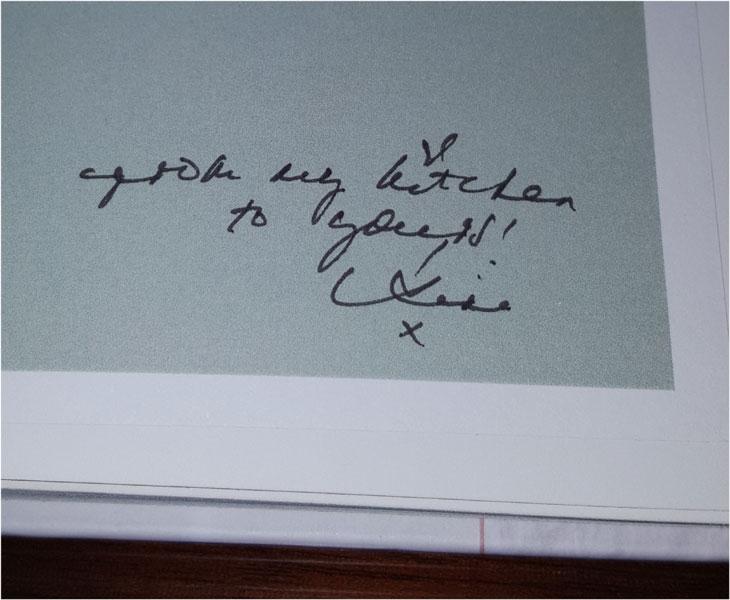 from my kitchen
to yours!
x